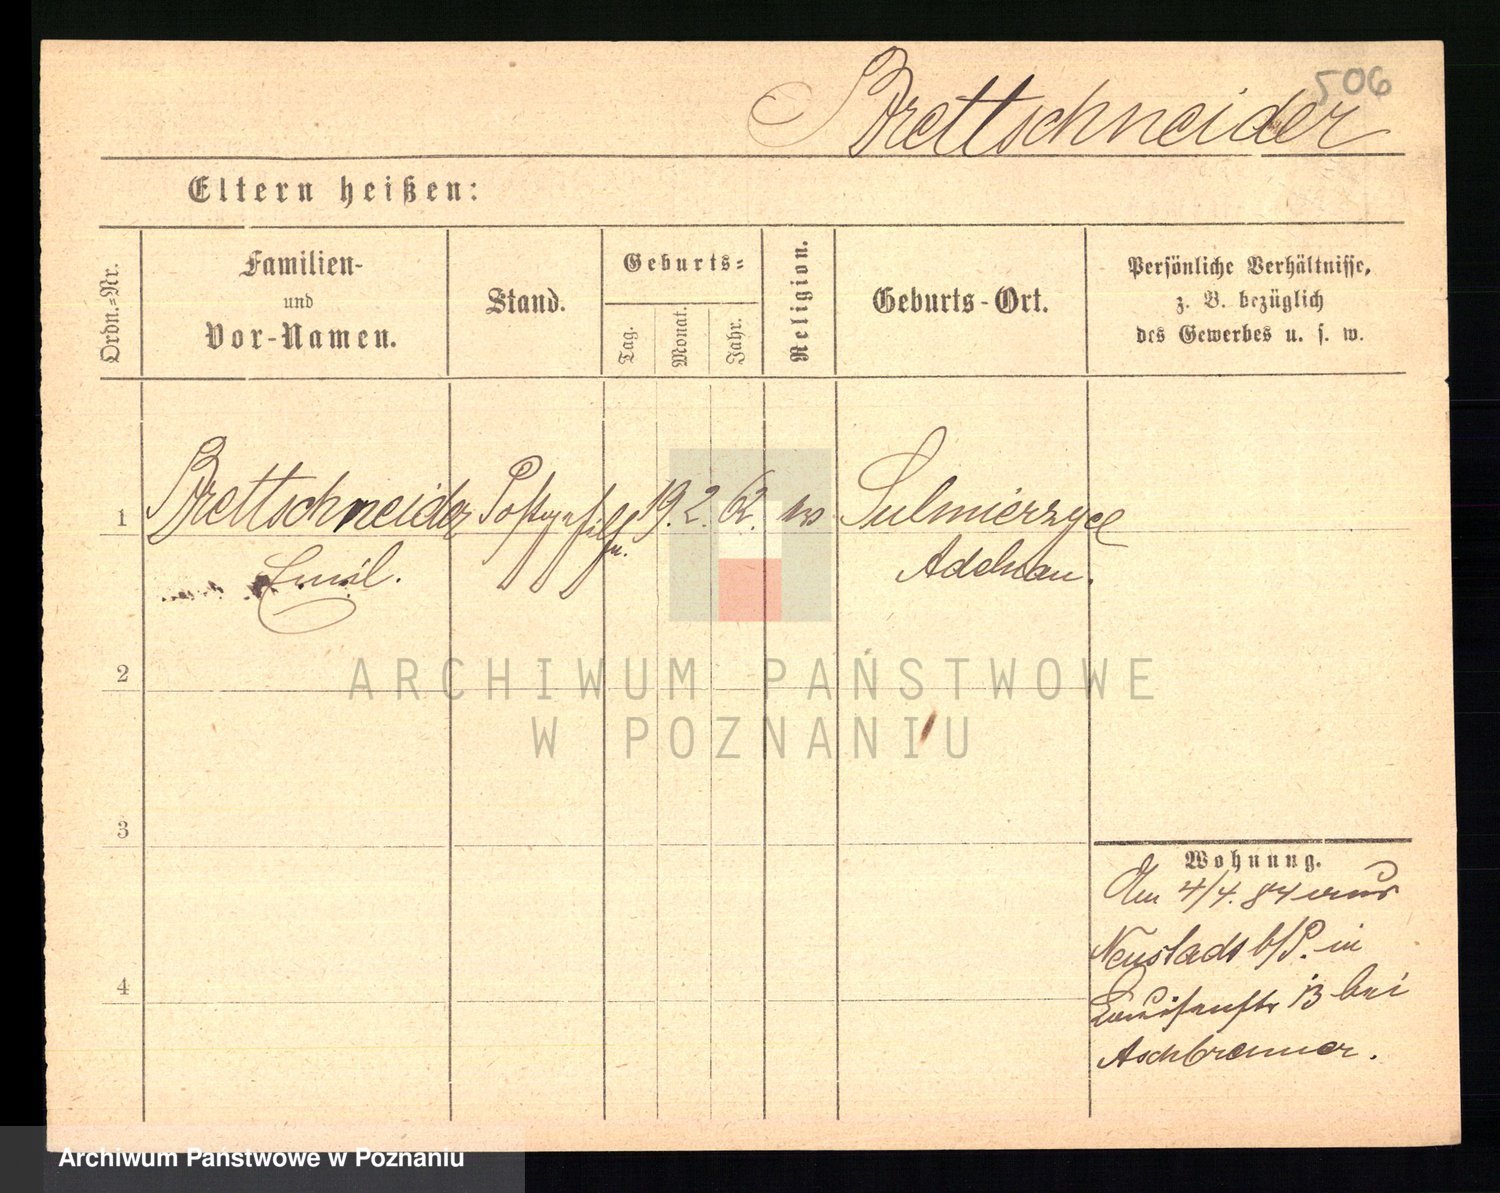 506
Brettschneider
Eltern heißen:
Ordn.=Nr.
Familien-
und
Vor-Namen.
Stand.
Geburts=
Tag.
Monat.
Jahr.
Religion.
Geburts-Ort.
Persönliche Verhältnisse,
z. B. bezüglich
des Gewerbes u. s. w.
1
Brettschneider Postgehilfe 19. 2. 62. Sulmierzyce
Emil. Adelnau.
2
ARCHIWUM PAŃSTWOWE
W POZNANIU
3
Wohnung.
Am 4/4. 84 aus
Neustadt b/P. in
4
Louisenstr 13 bei
Aschbrenner.
Archiwum Państwowe w Poznaniu